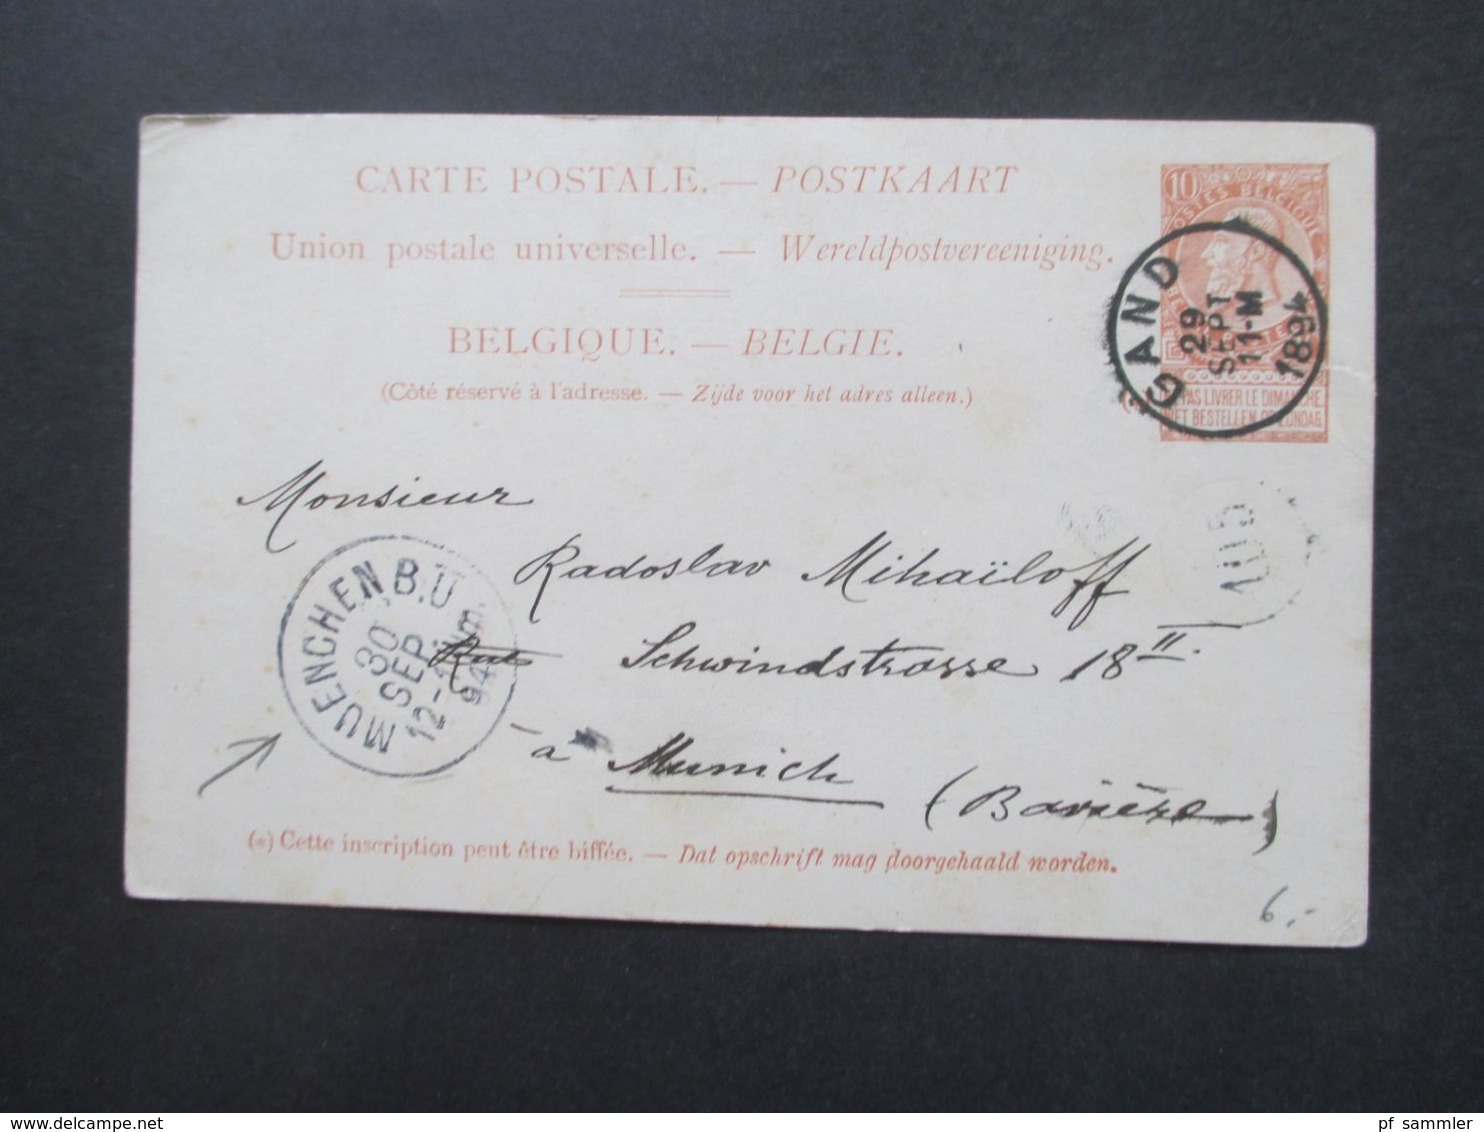 CARTE POSTALE. — POSTKAART
Union postale universelle. — Wereldpostvereeniging.
BELGIQUE. — BELGIE.
(Côté réservé à l'adresse. — Zijde voor het adres alleen.)
10
POSTES BELGIQUE
NE PAS LIVRER LE DIMANCHE
NIET BESTELLEN OP ZONDAG
GAND
29
SEPT
11-M
1894
Monsieur
Radoslav Mihaïloff
Rue Schwindstrasse 18 II.
à Munich (Bavière)
MUENCHEN B.U
30
SEP
12-1 Nm.
94
(*) Cette inscription peut être biffée. — Dat opschrift mag doorgehaald worden.
6.-
pf_sammler